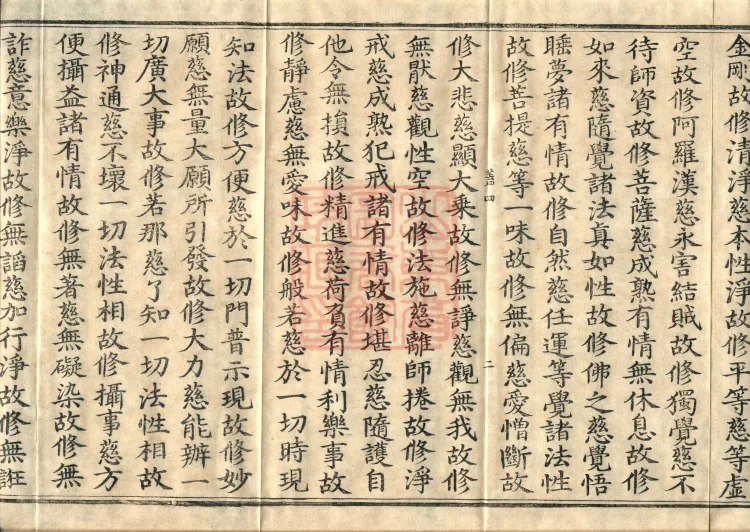 金剛故修清淨慈本性淨故修平等慈等虛
空故修阿羅漢慈永害結賊故修獨覺慈不
待師資故修菩薩慈成熟有情無休息故修
如來慈隨覺諸法真如性故修佛之慈覺悟
睡夢諸有情故修自然慈任運等覺諸法性
故修菩提慈等一味故修無偏慈愛憎斷故
蓋四
二
修大悲慈顯大乘故修無諍慈觀無我故修
無猒慈觀性空故修法施慈離師捲故修淨
戒慈成熟犯戒諸有情故修堪忍慈隨護自
他令無損故修精進慈荷負有情利樂事故
修靜慮慈無愛味故修般若慈於一切時現
知法故修方便慈於一切門普示現故修妙
願慈無量大願所引發故修大力慈能辨一
切廣大事故修若那慈了知一切法性相故
修神通慈不壞一切法性相故修攝事慈方
便攝益諸有情故修無著慈無礙染故修無
詐慈意樂淨故修無諂慈加行淨故修無誑